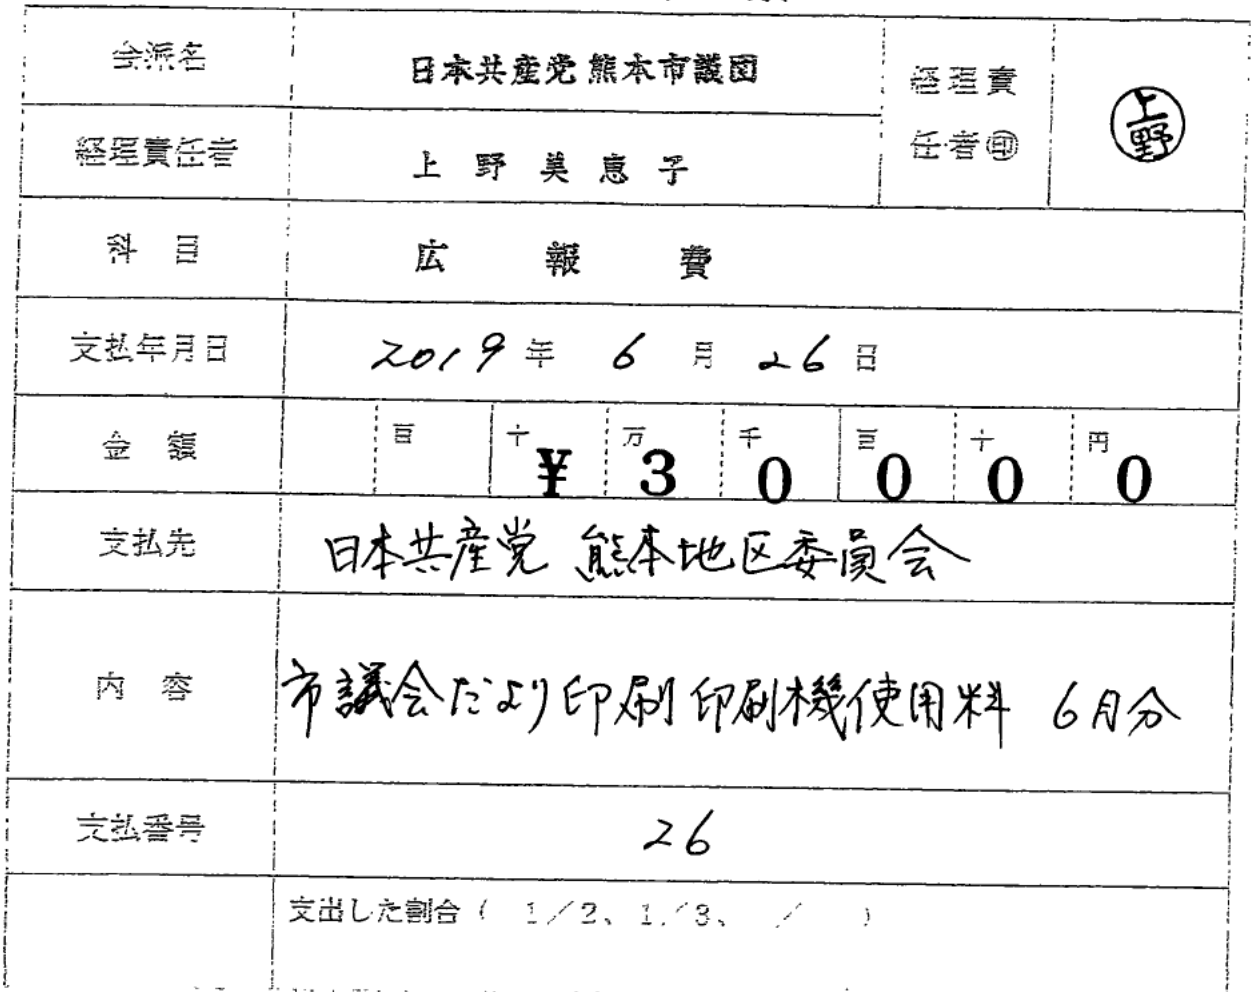 会派名 日本共産党熊本市議団 経理責任者㊞ 上野
経理責任者 上野美恵子
科目 広報費
支払年月日 2019年6月26日
金額 百 十 万 千 百 十 円
¥30000
支払先 日本共産党 熊本地区委員会
内容 市議会だより印刷 印刷機使用料 6月分
支払番号 26
支出した割合( 1/2、1/3、 / )